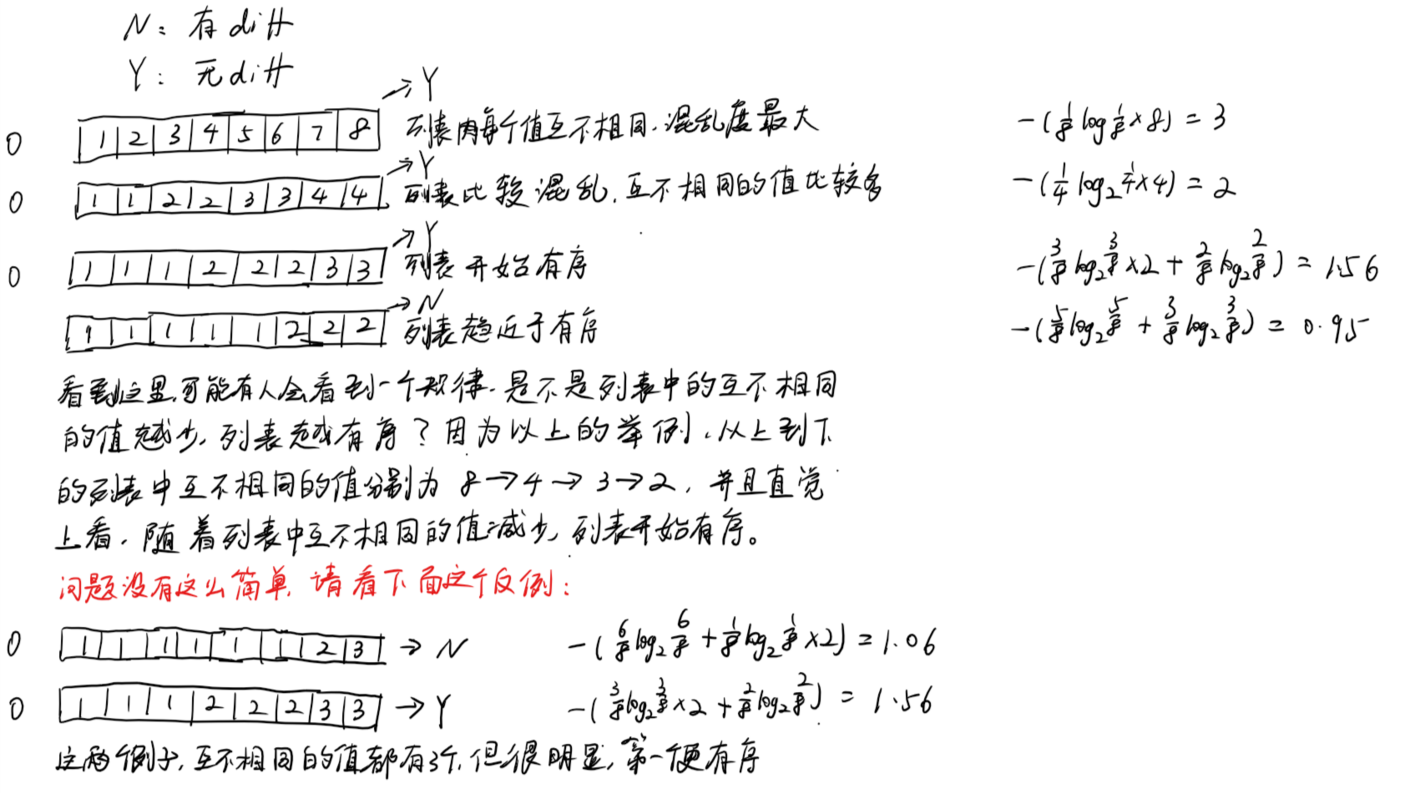 N: 有diff
Y: 无diff
0 1 2 3 4 5 6 7 8 →Y 列表内每个值互不相同.混乱度最大 -(1/8 log 1/8 ×8) = 3
0 1 1 2 2 3 3 4 4 →Y 列表比较混乱,互不相同的值比较多 -(1/4 log₂ 1/4 ×4) = 2
0 1 1 1 2 2 2 3 3 →Y 列表开始有序 -(3/8 log₂ 3/8 ×2 + 2/8 log₂ 2/8) = 1.56
1 1 1 1 1 2 2 2 →N 列表趋近于有序 -(5/8 log₂ 5/8 + 3/8 log₂ 3/8) = 0.95
看到这里,可能有人会看到一个规律.是不是列表中的互不相同
的值越少,列表越有序?因为以上的举例,从上到下
的列表中互不相同的值分别为 8→4→3→2,并且直觉
上看,随着列表中互不相同的值减少,列表开始有序。
问题没有这么简单,请看下面这个反例:
0 1 1 1 1 1 1 2 3 → N -(6/8 log₂ 6/8 + 1/8 log₂ 1/8 ×2) = 1.06
0 1 1 1 2 2 2 3 3 → Y -(3/8 log₂ 3/8 ×2 + 2/8 log₂ 2/8) = 1.56
这两个例子,互不相同的值都有3个,但很明显,第一个更有序